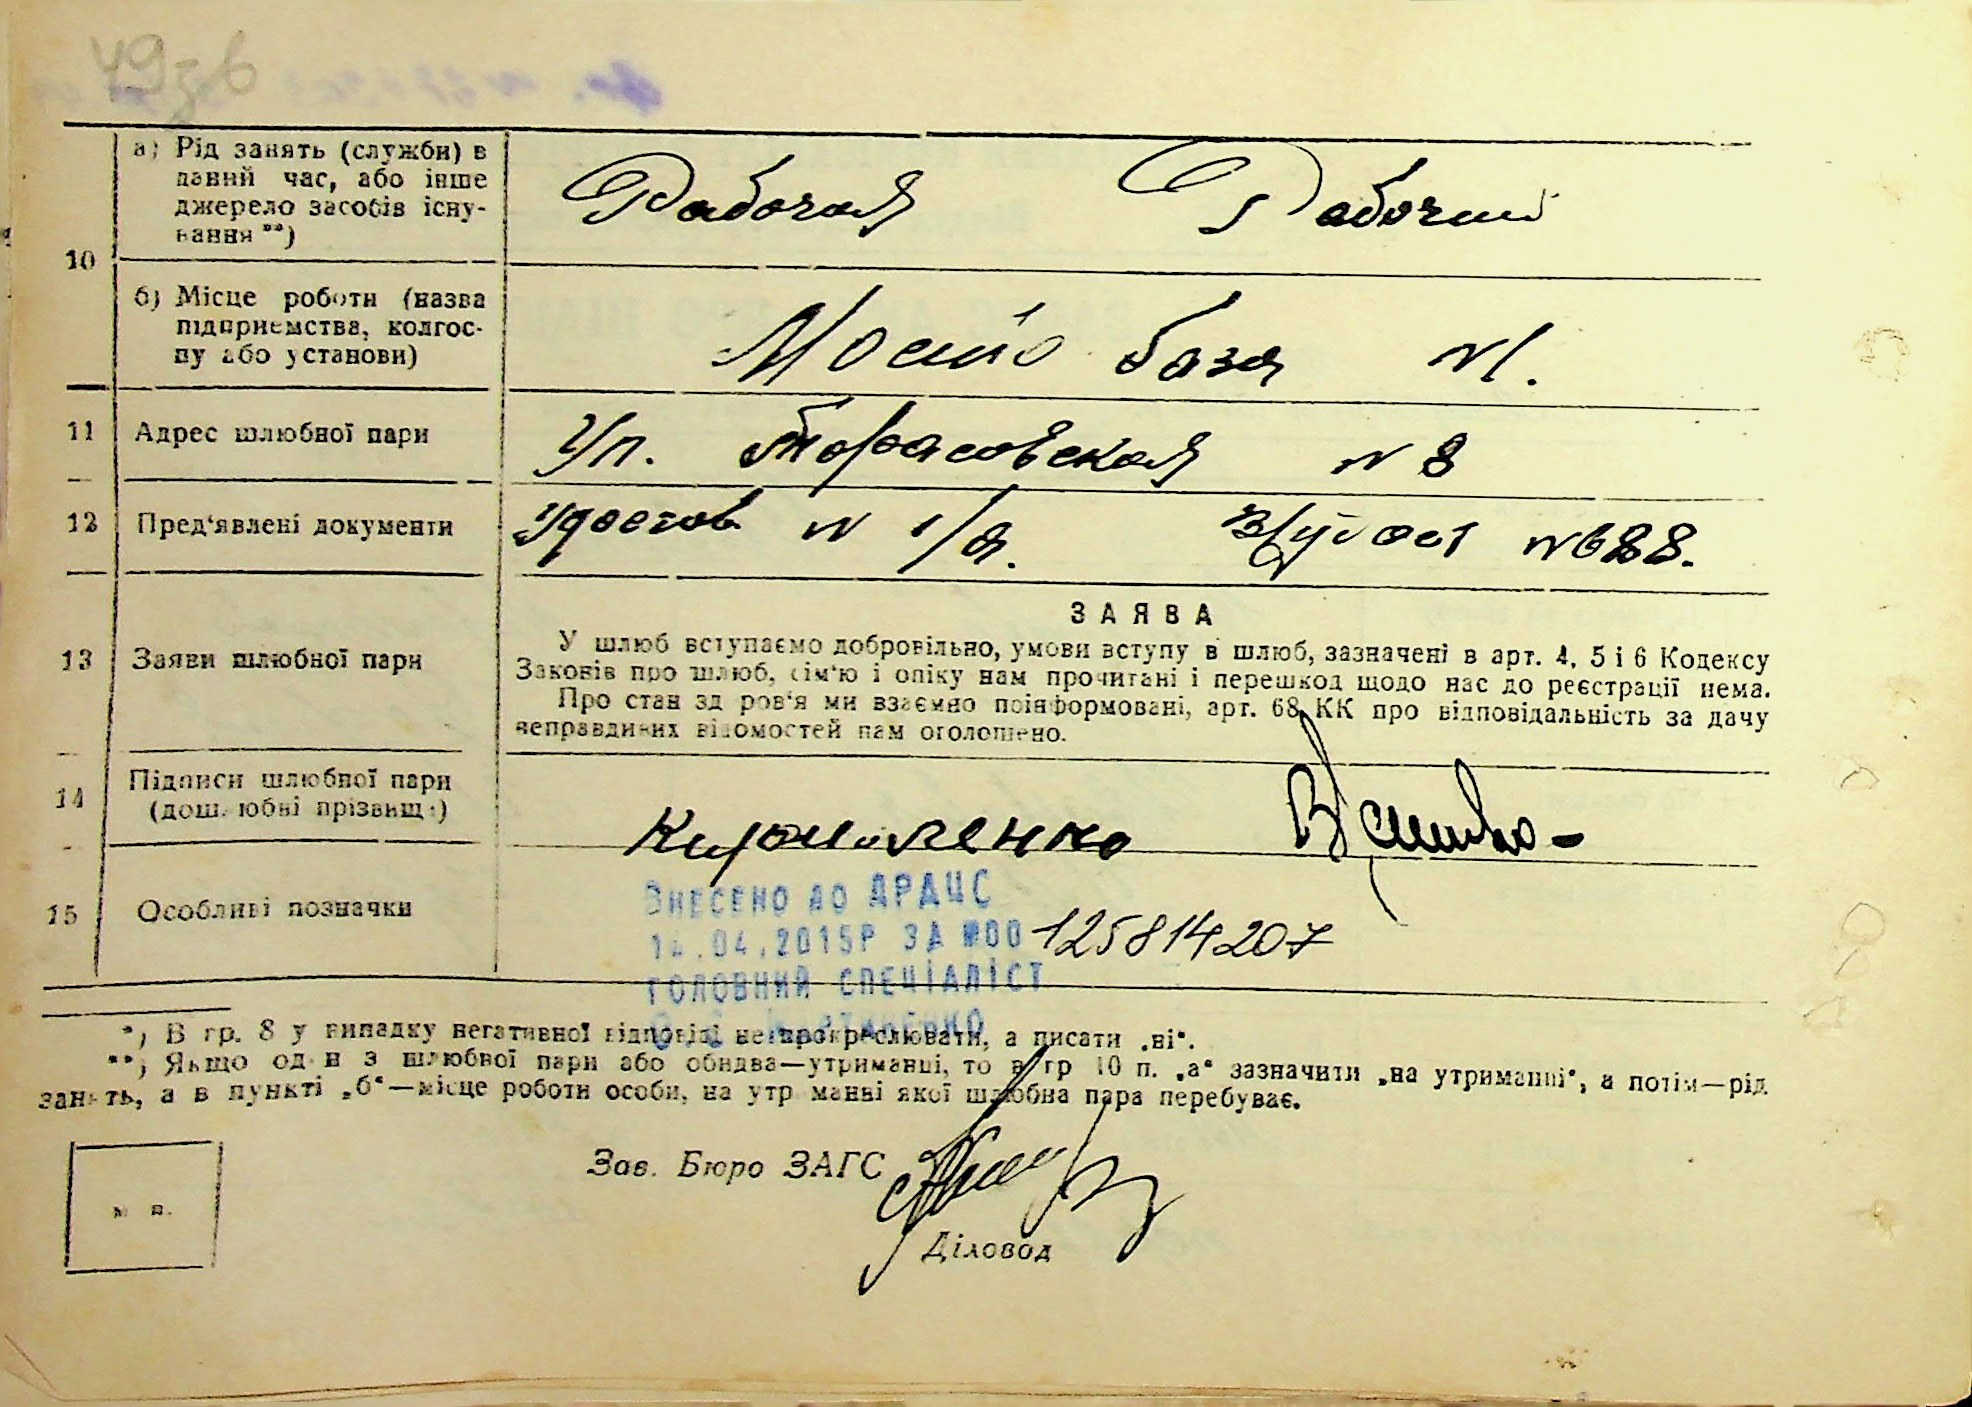 49зв
10
а) Рід занять (служби) в
даний час, або інше
джерело засобів існу-
вання **)
Рабочая Рабочий
б) Місце роботи (назва
підприємства, колгос-
пу або установи)
база N1.
11 Адрес шлюбної пари
Ул. Тарасовская N 8
12 Пред'явлені документи
Удостов N 1/я. N 688.
ЗАЯВА
13 Заяви шлюбної пари
У шлюб вступаємо добровільно, умови вступу в шлюб, зазначені в арт. 4, 5 і 6 Кодексу
Законів про шлюб, сім'ю і опіку нам прочитані і перешкод щодо нас до реєстрації нема.
Про стан здоров'я ми взаємно поінформовані, арт. 68 КК про відповідальність за дачу
неправдивих відомостей нам оголошено.
14 Підписи шлюбної пари
(дошлюбні прізвища)
15 Особливі позначки
ВНЕСЕНО ДО ДРАЦС
14.04.2015Р ЗА №00 125814207
ГОЛОВНИЙ СПЕЦІАЛІСТ
*) В гр. 8 у випадку негативної відповіді не прокреслювати, а писати „ні".
**) Якщо один з шлюбної пари або обидва—утриманці, то в гр 10 п. „а" зазначити „на утриманні", а потім—рід
занять, а в пункті „б"—місце роботи особи, на утриманні якої шлюбна пара перебуває.
Зав. Бюро ЗАГС
м п.
Діловод